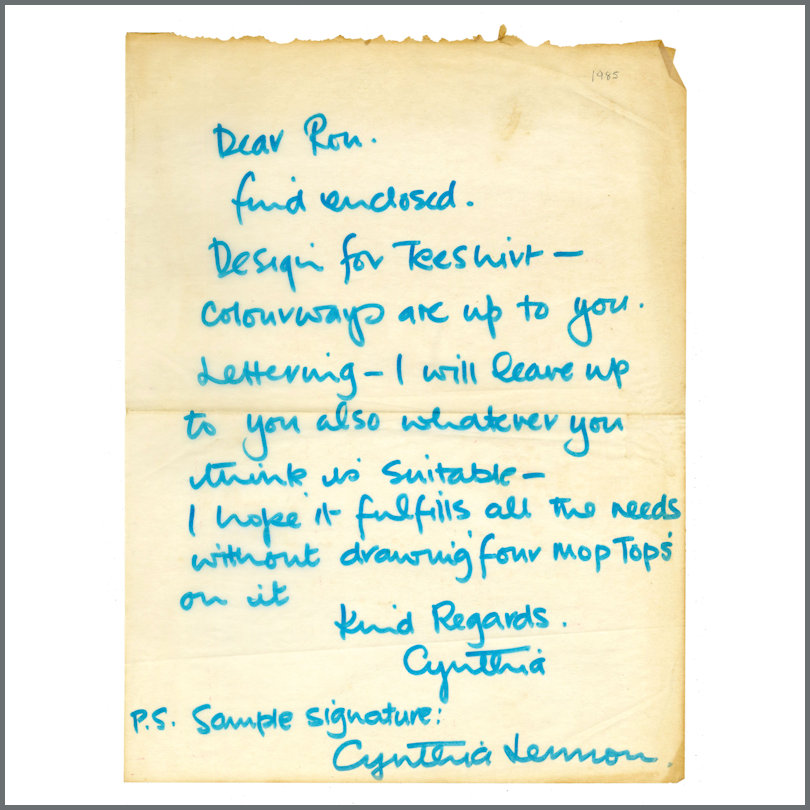 1985
Dear Ron.
find enclosed.
Design for Teeshirt —
colourways are up to you.
Lettering — I will leave up
to you also whatever you
think is suitable —
I hope it fulfills all the needs
without drawing four mop Tops
on it
Kind Regards.
Cynthia
P.S. Sample signature:
Cynthia Lennon.